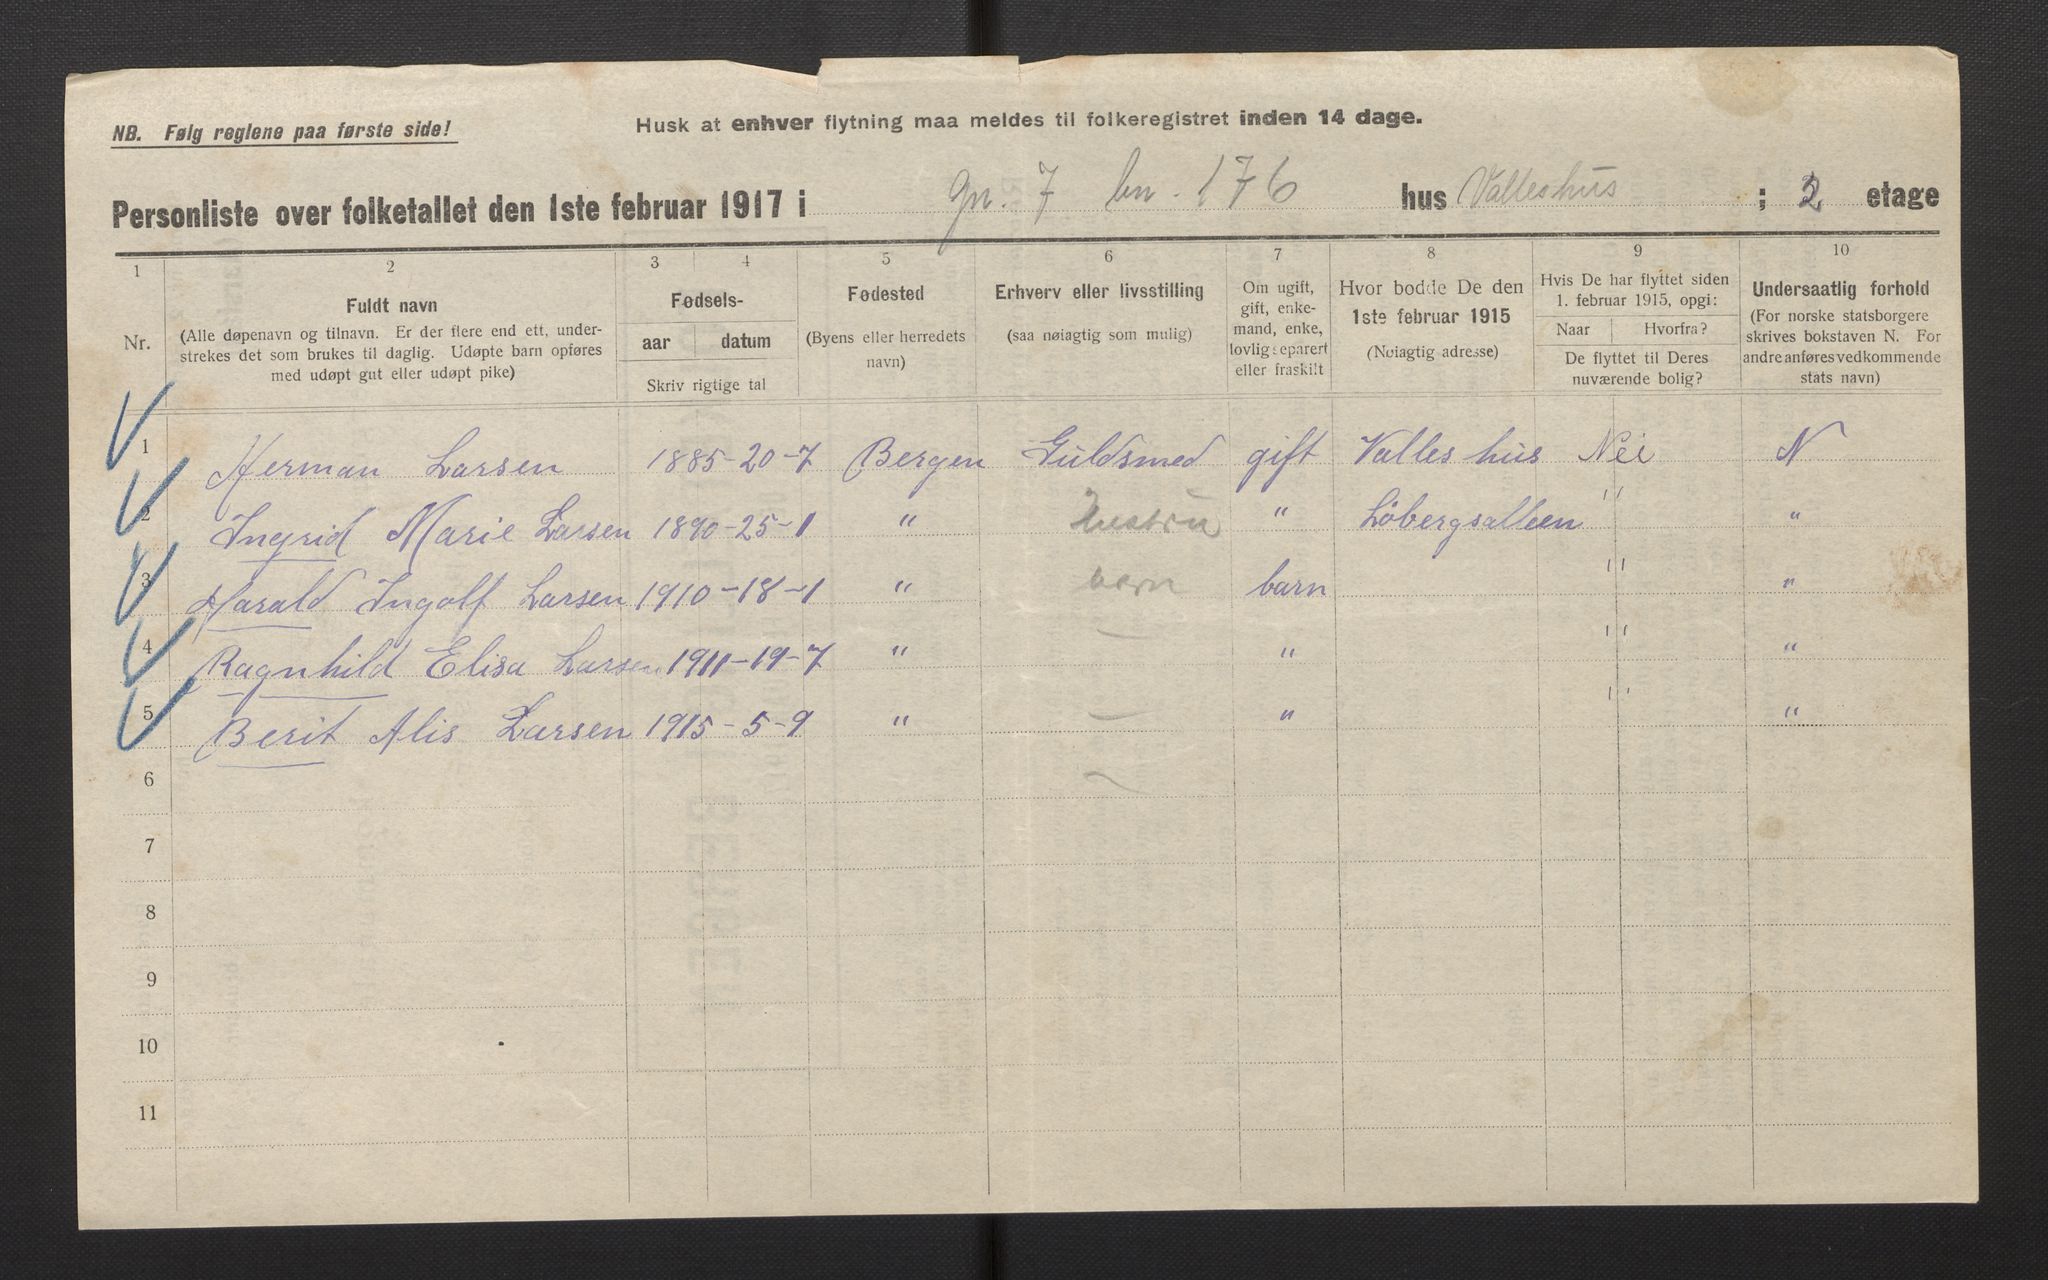 NB. Følg reglene paa første side!
Husk at enhver flytning maa meldes til folkeregistret inden 14 dage.
Personliste over folketallet den 1ste februar 1917 i gn. 7 bn. 176 hus Valleshus ; 2 etage
1 2 3 4 5 6 7 8 9 10
Nr.
Fuldt navn
(Alle døpenavn og tilnavn. Er der flere end ett, under-
strekes det som brukes til daglig. Udøpte barn opføres
med udøpt gut eller udøpt pike)
Fødsels-
aar datum
Skriv rigtige tal
Fødested
(Byens eller herredets
navn)
Erhverv eller livsstilling
(saa nøiagtig som mulig)
Om ugift,
gift, enke-
mand, enke,
lovlig separert
eller fraskilt
Hvor bodde De den
1ste februar 1915
(Nøiagtig adresse)
Hvis De har flyttet siden
1. februar 1915, opgi:
Naar Hvorfra?
De flyttet til Deres
nuværende bolig?
Undersaatlig forhold
(For norske statsborgere
skrives bokstaven N. For
andre anføres vedkommende
stats navn)
1 Herman Larsen 1885-20-7 Bergen Guldsmed gift Valles hus Nei N
2 Ingrid Marie Larsen 1890-25-1 " Hustru " Löbergsalleen " "
3 Harald Ingolf Larsen 1910-18-1 " barn barn " "
4 Ragnhild Elisa Larsen 1911-19-7 " — " " "
5 Berit Alis Larsen 1915-5-9 " — " " "
6
7
8
9
10
11